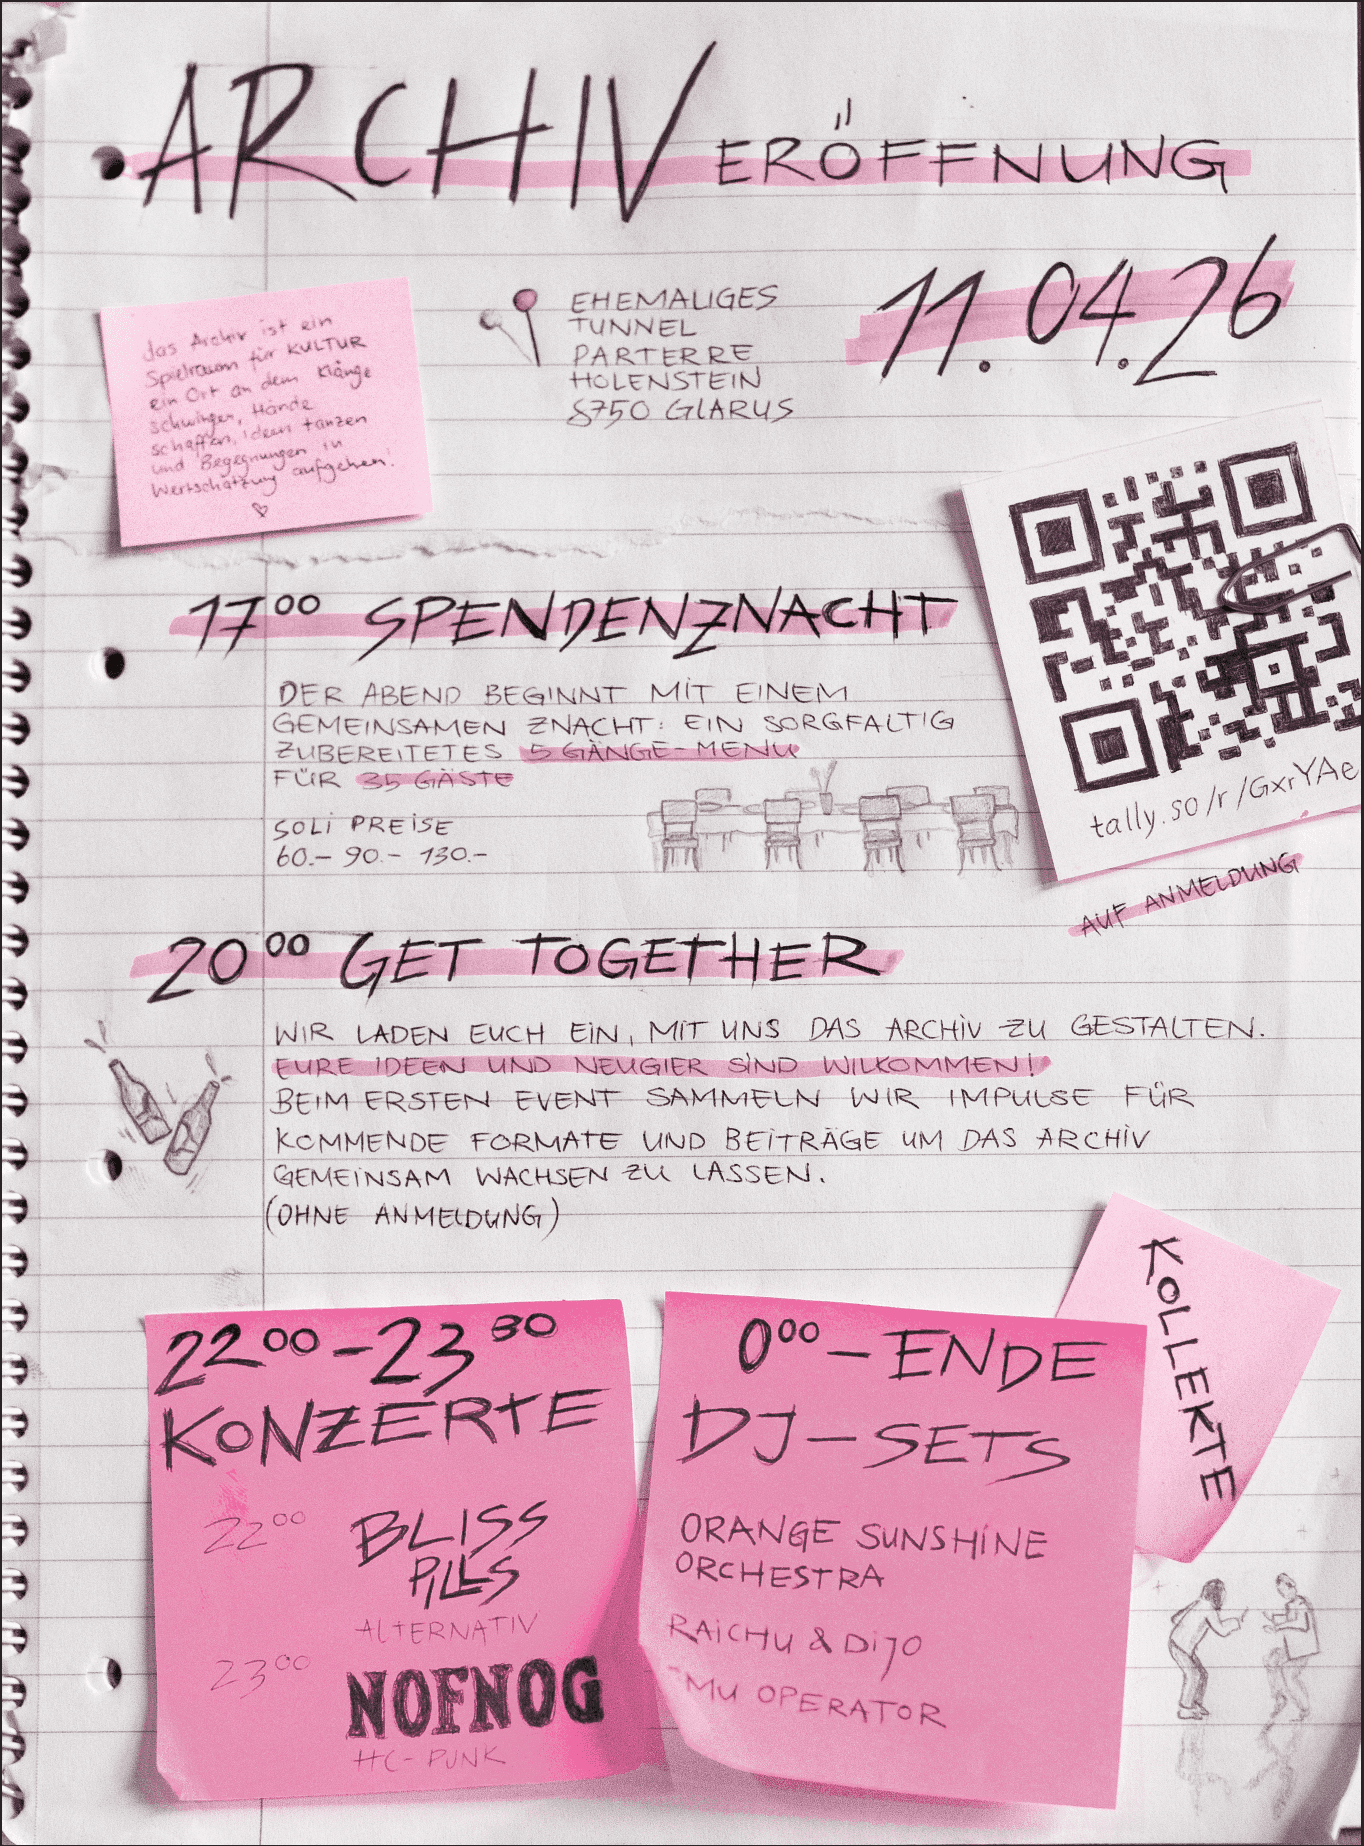 ARCHIV ERÖFFNUNG
11.04.26
EHEMALIGES
TUNNEL
PARTERRE
HOLENSTEIN
8750 GLARUS
das Archiv ist ein
Spielraum für KULTUR
ein Ort an dem Klänge
schwingen, Hände
schaffen, Ideen tanzen
und Begegnungen in
Wertschätzung aufgehen!
tally.so/r/GxrYAe
AUF ANMELDUNG
17⁰⁰ SPENDENZNACHT
DER ABEND BEGINNT MIT EINEM
GEMEINSAMEN ZNACHT: EIN SORGFALTIG
ZUBEREITETES 5 GÄNGE-MENU
FÜR 35 GÄSTE
SOLI PREISE
60.- 90.- 130.-
20⁰⁰ GET TOGETHER
WIR LADEN EUCH EIN, MIT UNS DAS ARCHIV ZU GESTALTEN.
EURE IDEEN UND NEUGIER SIND WILKOMMEN!
BEIM ERSTEN EVENT SAMMELN WIR IMPULSE FÜR
KOMMENDE FORMATE UND BEITRÄGE UM DAS ARCHIV
GEMEINSAM WACHSEN ZU LASSEN.
(OHNE ANMELDUNG)
22⁰⁰-23³⁰
KONZERTE
22⁰⁰ BLISS
PILLS
ALTERNATIV
23⁰⁰ NOFNOG
HC-PUNK
0⁰⁰-ENDE
DJ-SETS
ORANGE SUNSHINE
ORCHESTRA
RAICHU & DIJO
MU OPERATOR
KOLLEKTE